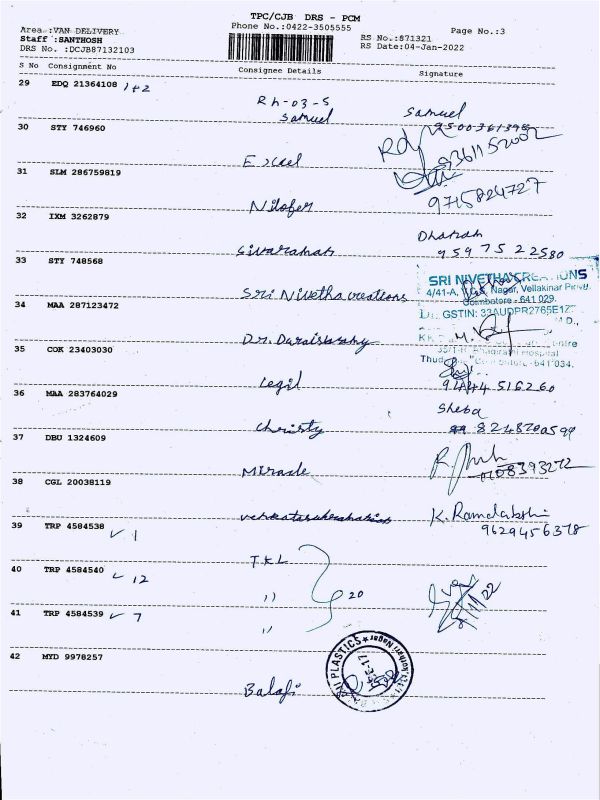 TPC/CJB DRS - PCM
Area :VAN DELIVERY
Phone No.:0422-3505555
Page No.:3
Staff :SANTHOSH
RS No.:871321
DRS No. :DCJB87132103
RS Date:04-Jan-2022
S No Consignment No Consignee Details Signature
29 EDQ 21364108 1+2
Rh-03-S
Samuel Samuel
9500361398
30 STY 746960
9361152002
Excel
31 SLM 286759819
9715824727
Nilofer
32 IXM 3262879
Dharan
Sivaraman 9597522580
33 STY 748568
SRI NIVETHA CREATIONS
Sri Nivetha creations 4/41-A, Nagar, Vellakinar
Coimbatore - 641 029.
34 MAA 287123472
GSTIN: 33AUDPR2765E1Z
Dr. Duraiswamy
Hospital
35 COK 23403030
641 034.
Legil 9444516260
36 MAA 283764029
Sheba
Christy 8248700599
37 DBU 1324609
Miracle
38 CGL 20038119
K. Ramalakshmi
9629456378
39 TRP 4584538 ✓ 1
TKL
40 TRP 4584540 ✓ 12
" 20
41 TRP 4584539 ✓ 7
"
42 MYD 9978257
PLASTICS
Nagar
Balaji